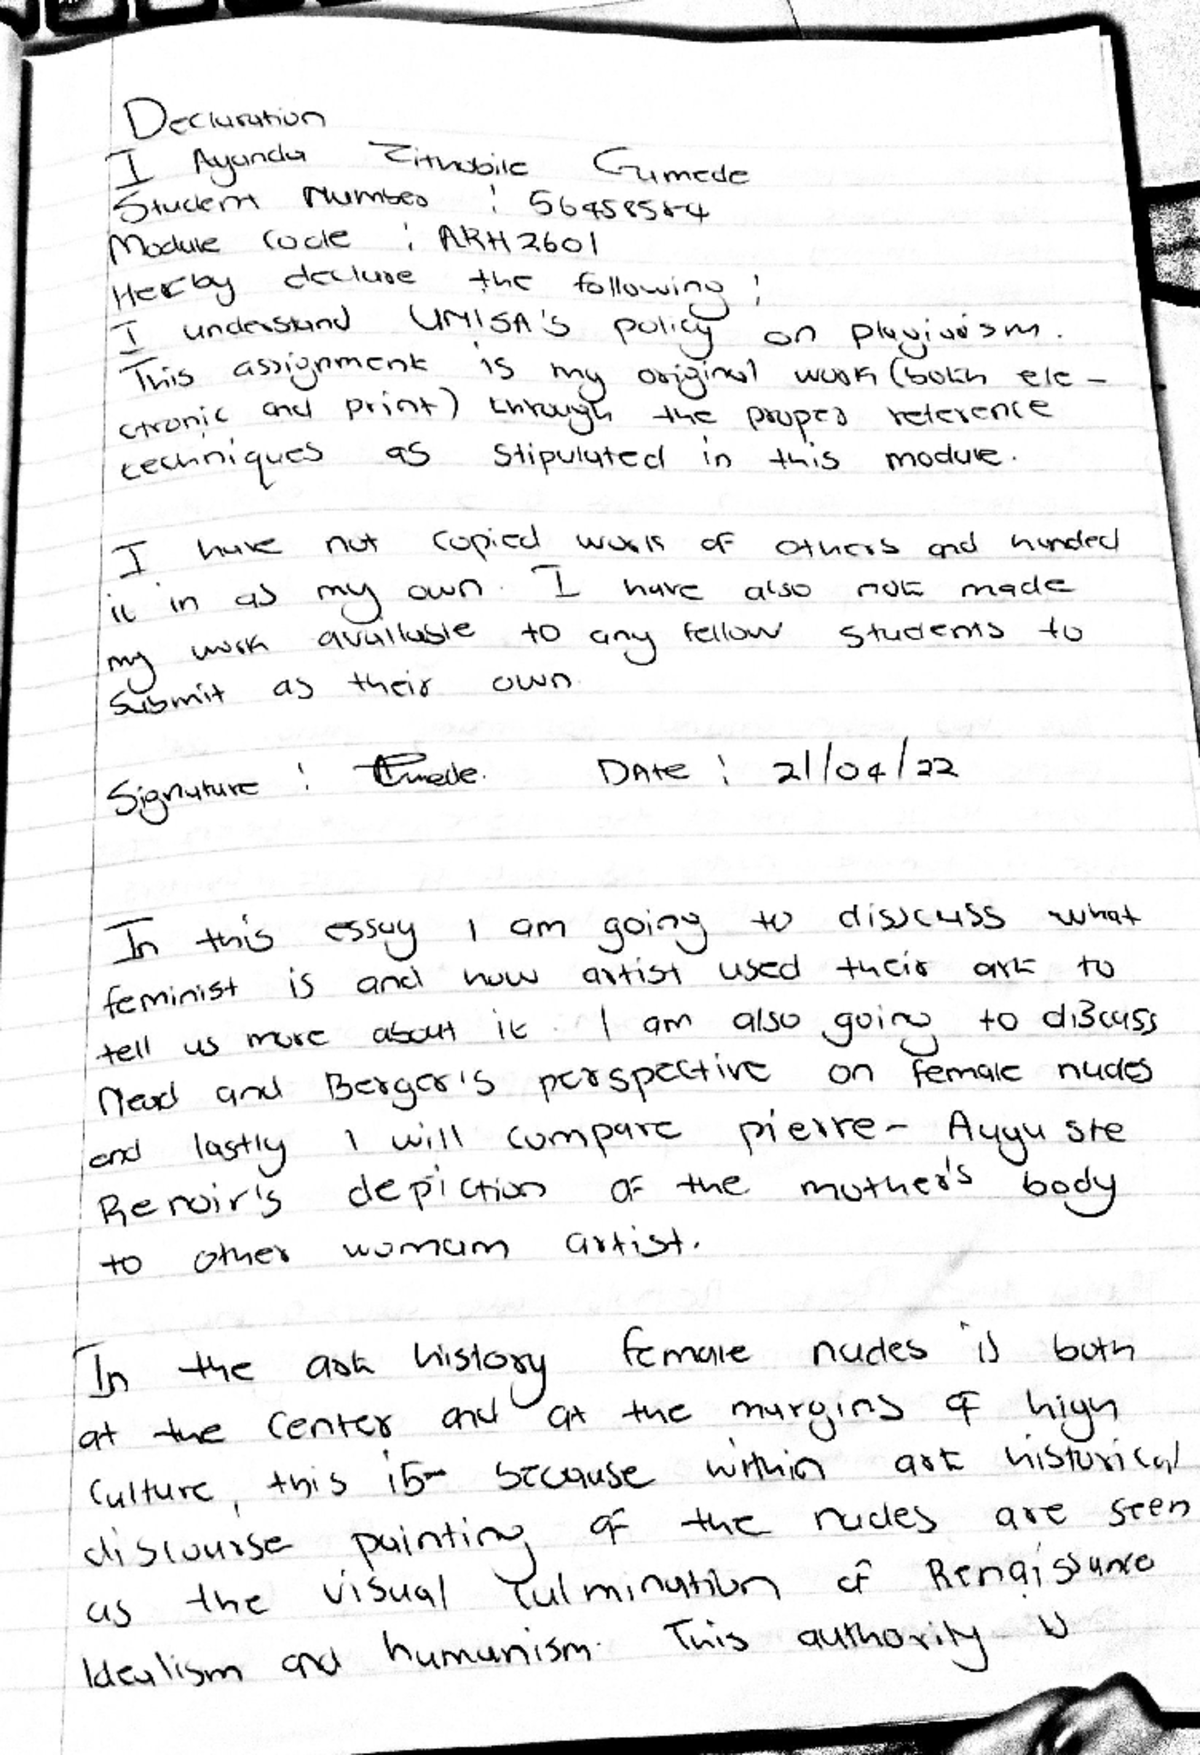 Declaration
I Ayanda Zithobile Gumede
Student Number : 56458584
Module Code : ARH2601
Hereby declare the following :
I understand UNISA's policy on plagiarism.
This assignment is my original work (both ele-
ctronic and print) through the proper reference
techniques as stipulated in this module.
I have not copied work of others and handed
it in as my own. I have also not made
my work available to any fellow students to
submit as their own.
Signature : Gumede. DATE : 21/04/22
In this essay I am going to disscuss what
feminist is and how artist used their art to
tell us more about it. I am also going to discuss
Nead and Berger's perspective on female nudes
and lastly I will compare pierre-Auguste
Renoir's depiction of the mother's body
to other womam artist.
In the art history female nudes is both
at the center and at the margins of high
culture, this is because within art historical
discourse painting of the nudes are seen
as the visual culmination of Renaissance
Idealism and humanism. This authority is